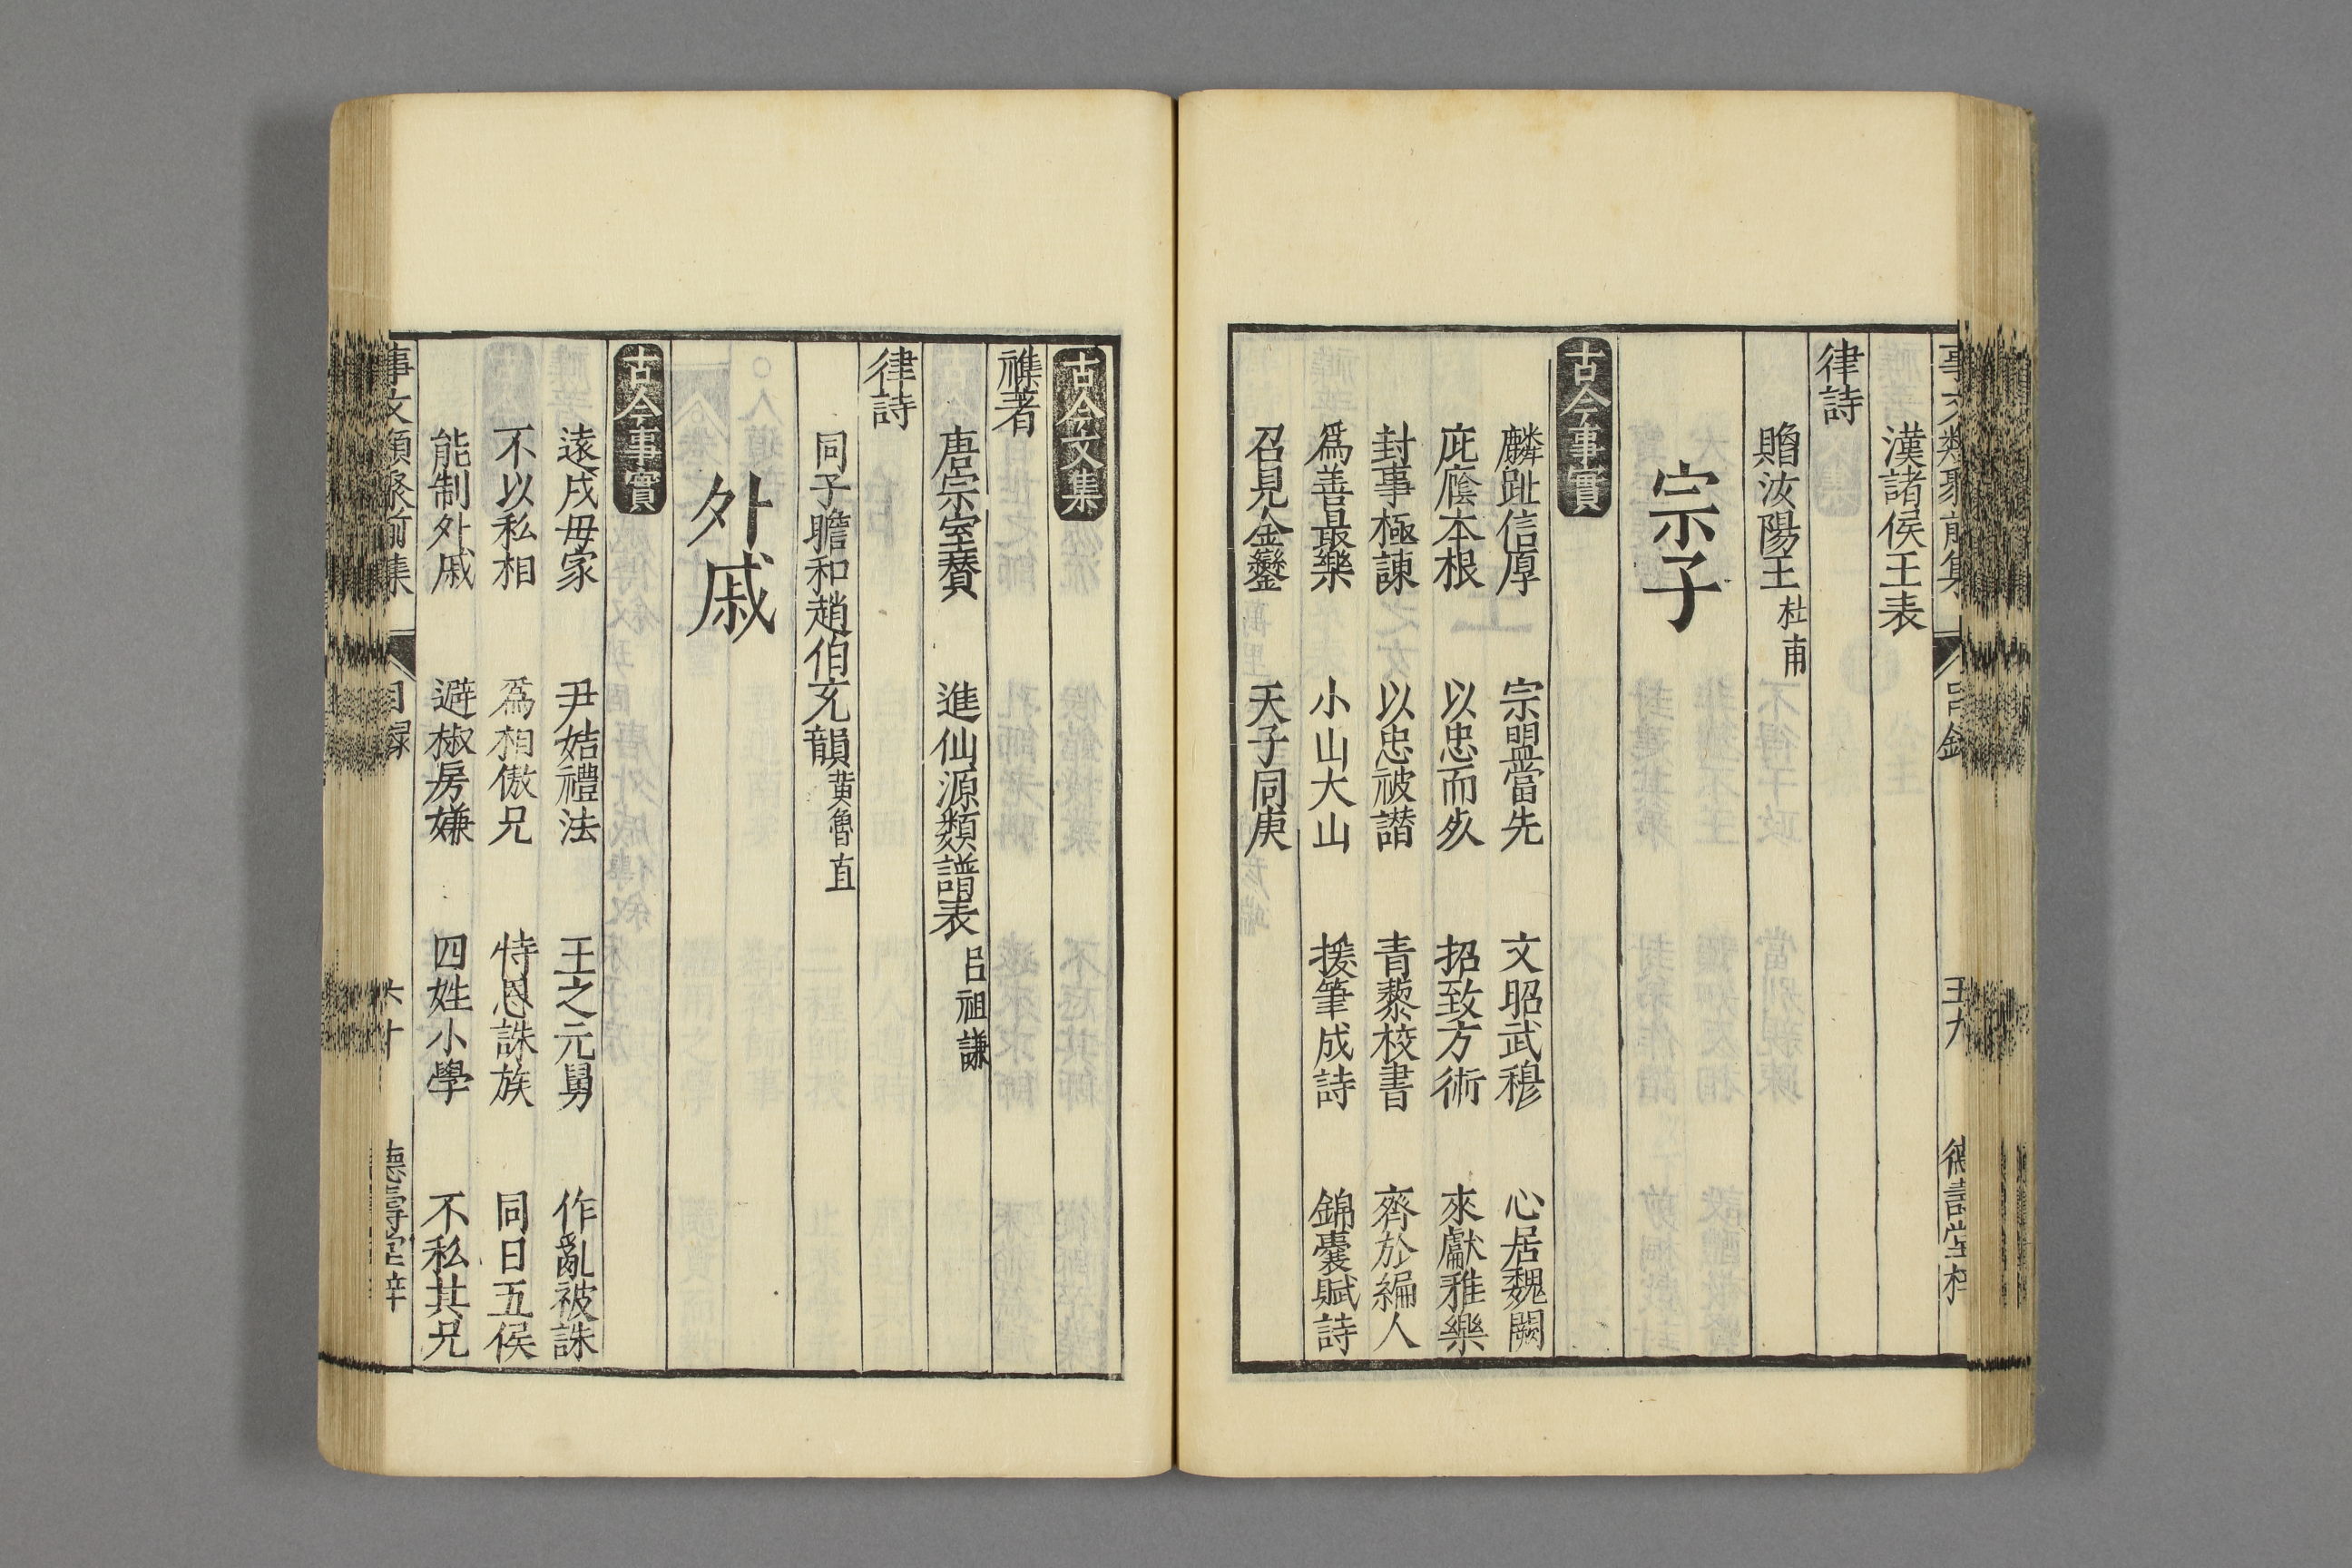 漢諸侯王表
律詩
贈汝陽王 杜甫
宗子
古今事實
麟趾信厚 宗盟當先 文昭武穆 心居魏闕
庇廕本根 以忠而疚 招致方術 來獻雅樂
封事極諫 以忠被譖 青藜校書 齊於編人
爲善最樂 小山大山 援筆成詩 錦囊賦詩
召見金鑾 天子同庚
古今文集
襍著
唐宗室贊 進仙源類譜表 呂祖謙
律詩
同子瞻和趙伯充韻 黄魯直
外戚
古今事實
遠戍毋家 尹姞禮法 王之元舅 作亂被誅
不以私相 爲相倣兄 恃恩誅族 同日五侯
能制外戚 避椒房嫌 四姓小學 不私其兄
事文類聚前集 目録 六十 德壽堂梓